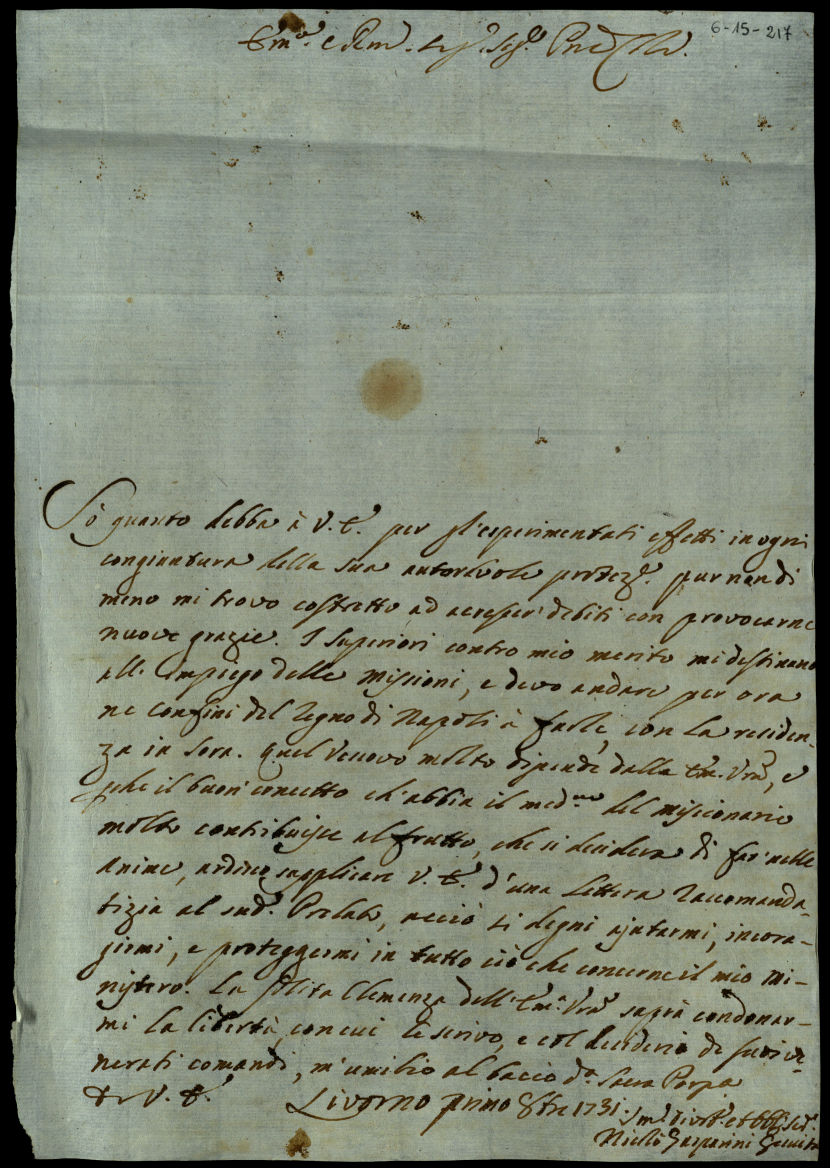 6-15-217
Em.o e Rem.
Sò quanto debba à V. E. per gl'esperimentati effetti in ogni
congiuntura della sua autorevole protez.e pur non di
meno mi trovo costretto ad accrescer debiti con provocarne
nuove grazie. I Superiori contro mio merito mi destinano
all' impiego delle Missioni, e devo andare per ora
ne confini del Regno di Napoli à farle, con la residen-
za in Sora. Quel Vescovo molto dipende dalla Em. Vra, e
che il buon concetto ch'abbia il med.mo del Missionario
molto contribuisce al frutto, che si desidera di far nelle
Anime, ardisco supplicare V. E. d'una Lettera Raccomanda-
tizia al sud.o Prelato, acciò si degni ajutarmi, incora-
girmi, e proteggermi in tutto ciò che concerne il mio Mi-
nistero. La solita Clemenza dell' Em.a Vra saprà condonar-
mi la libertà, con cui Le scrivo, e col desiderio de suoi ve-
nerati comandi, m'umilio al baccio d.a Sacra Porpa
di V. E. Livorno primo 8bre 1731.
Gasparini